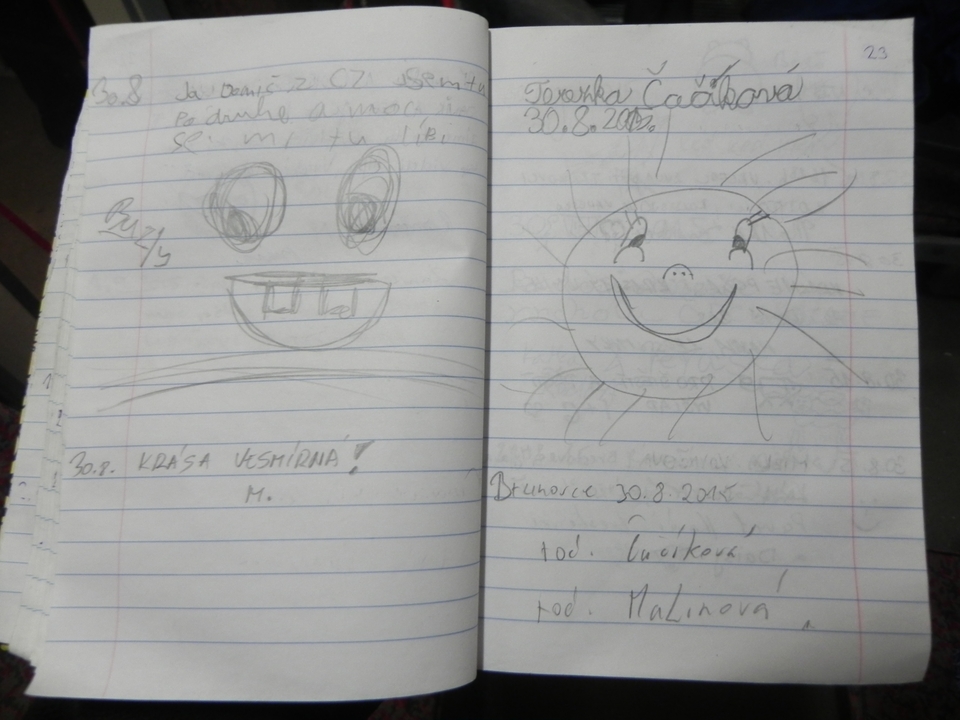 30.8 Ja Domič z CZ jsem tu
podruhe a moc
se mi tu líbí
30.8. KRÁSA VESMÍRNÁ!
M.
23
Terezka Čačíková
30.8.2015.
Brunovce 30.8.2015
rod. Čačíková
rod. Malinová